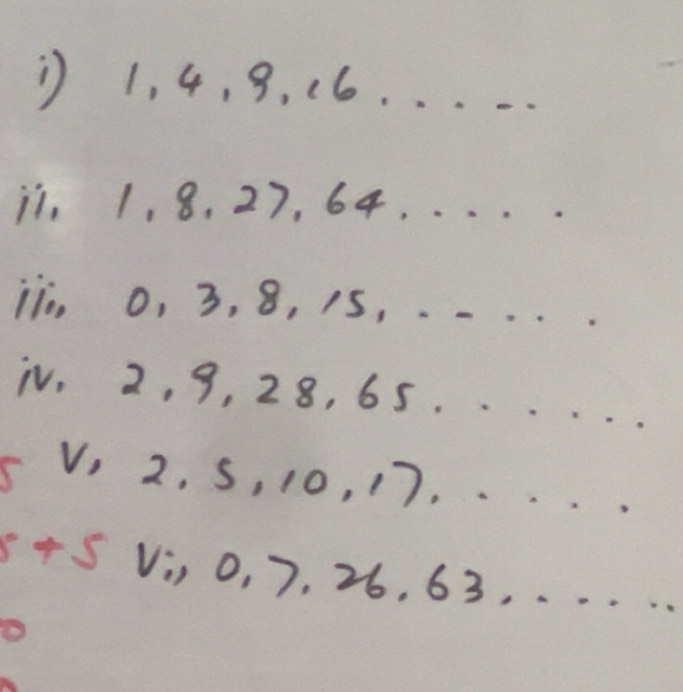 i) 1, 4, 9, 16.....
ii. 1, 8, 27, 64.....
iii, 0, 3, 8, 15, .....
iv. 2, 9, 28, 65.......
5 v, 2, 5, 10, 17.....
5+5 vi, 0, 7, 26, 63.......
0